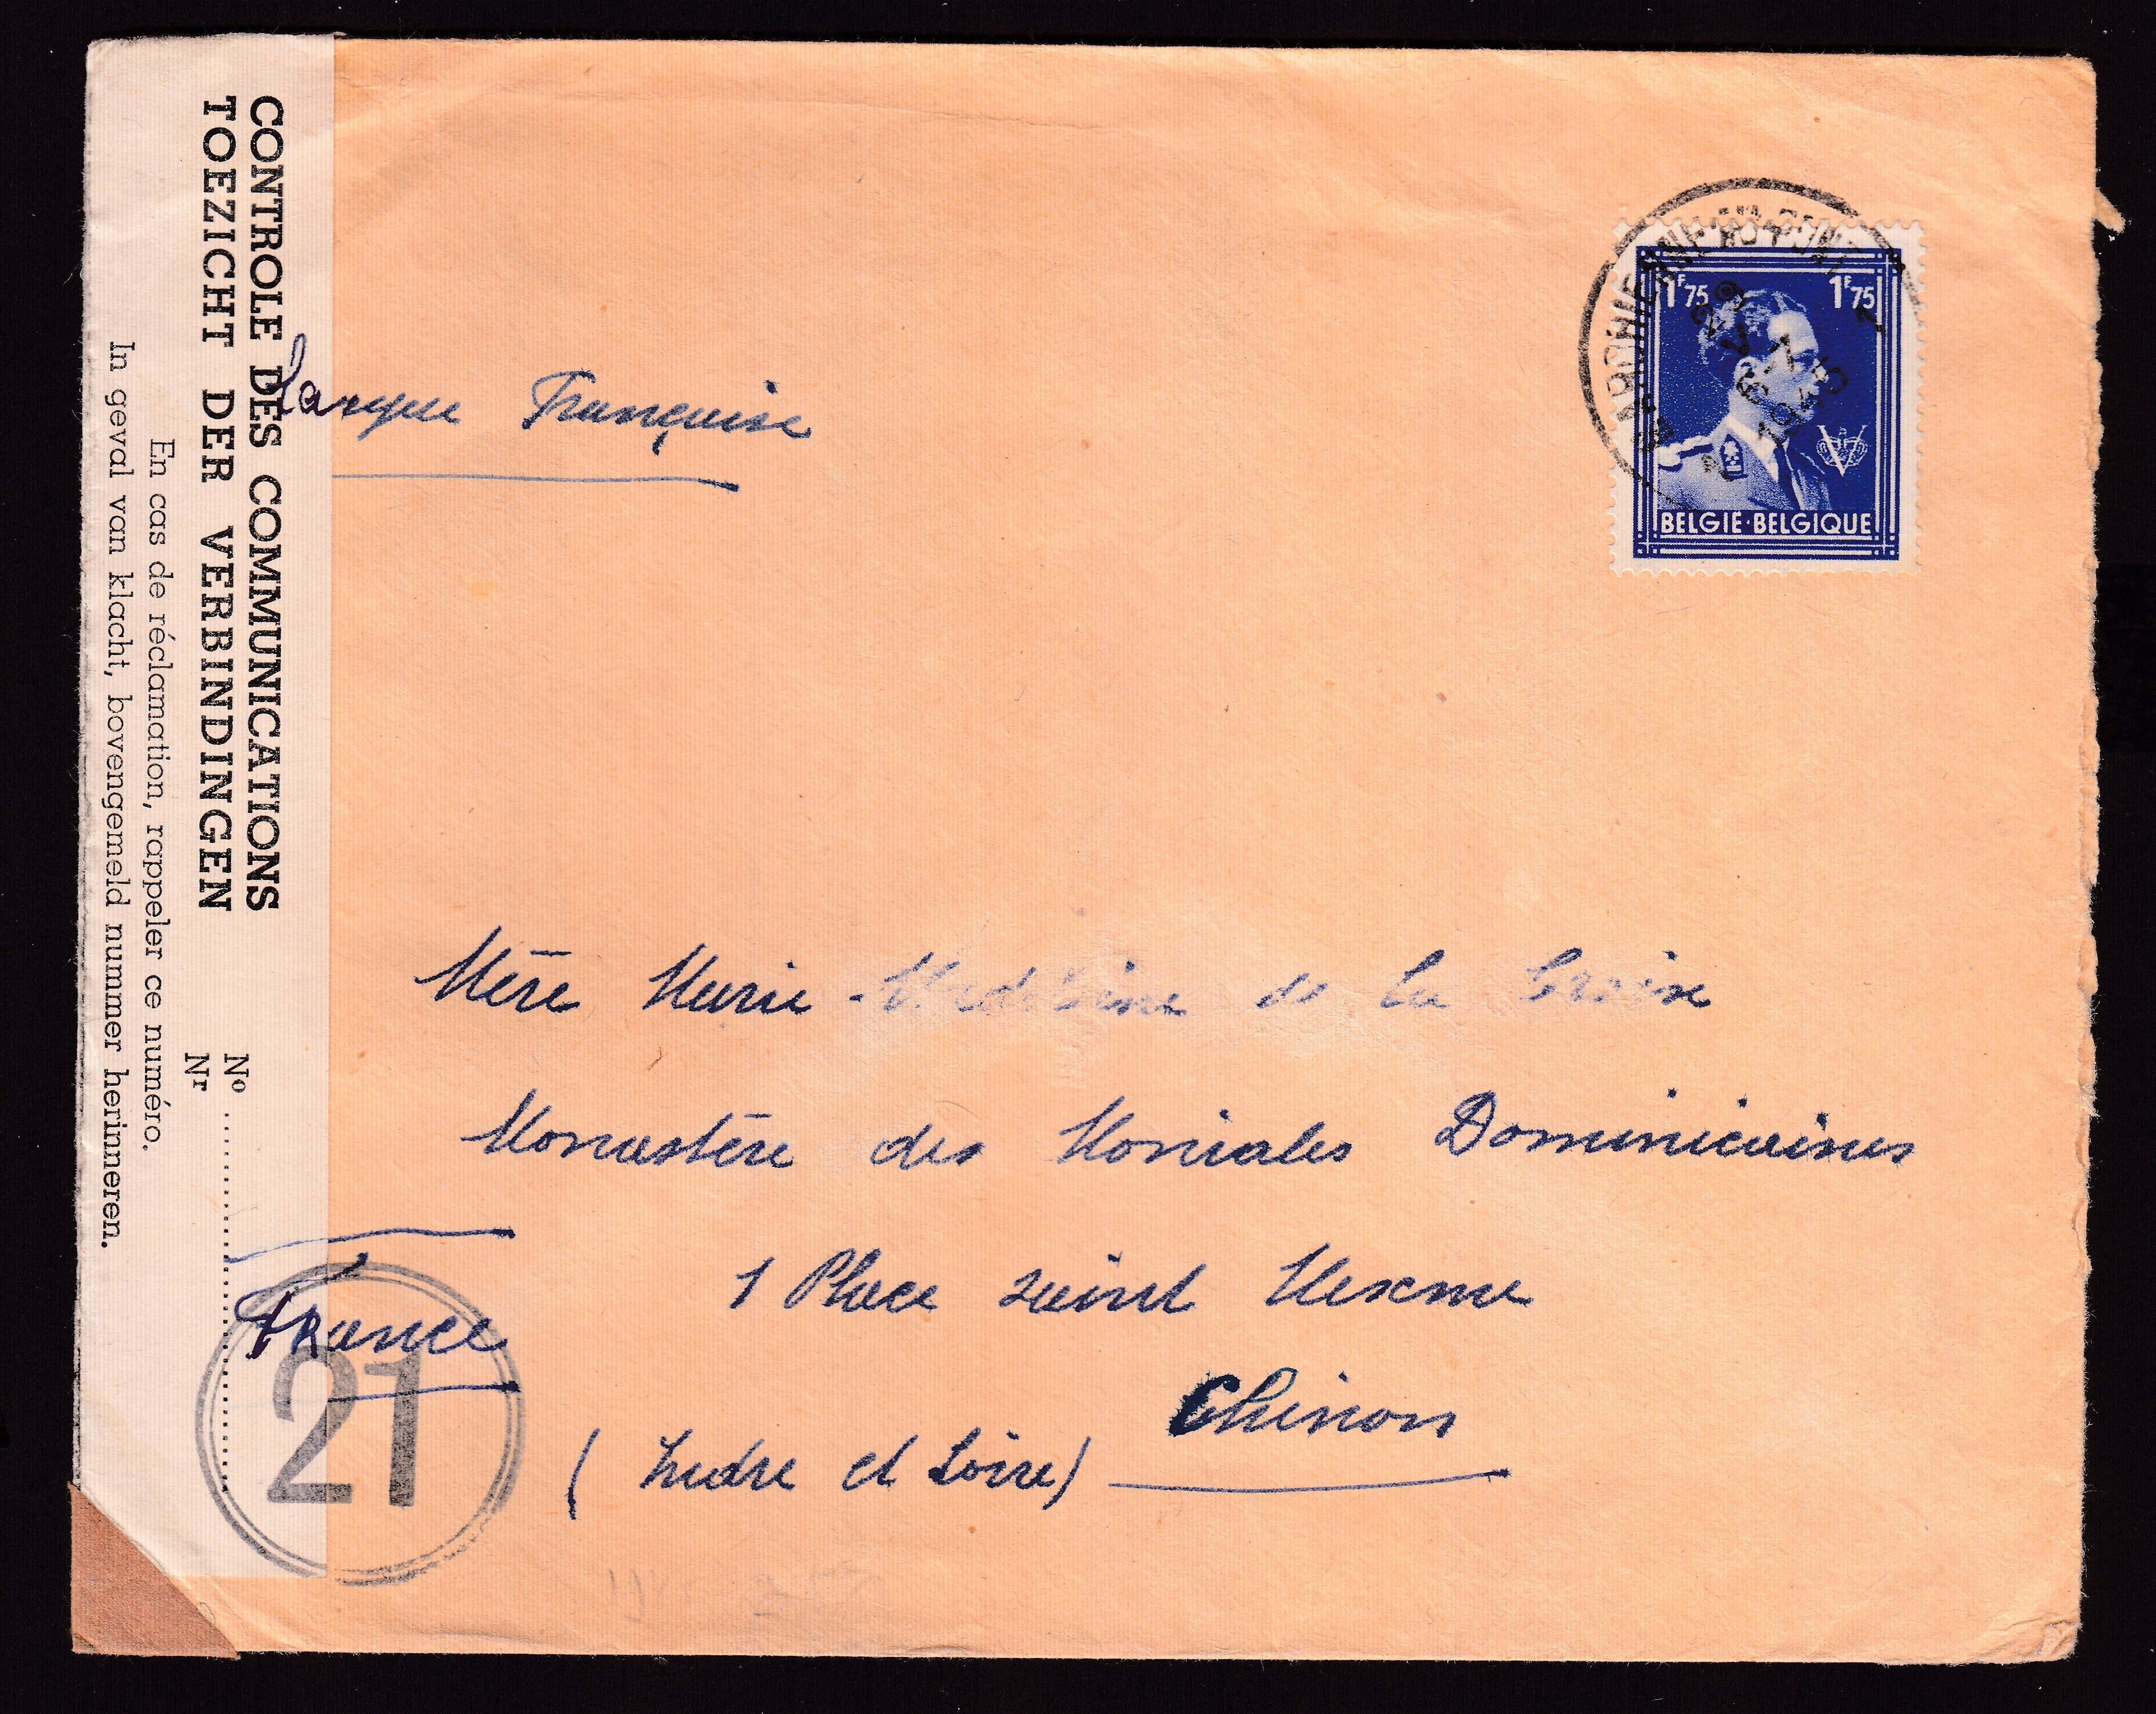 CONTROLE DES COMMUNICATIONS
TOEZICHT DER VERBINDINGEN
No
Nr
En cas de réclamation, rappeler ce numéro.
In geval van klacht, bovengemeld nummer herinneren.
Langue Française
1F75 1F75
1945
V
BELGIË·BELGIQUE
Mère Marie-Madeleine de la Croix
Monastère des Moniales Dominicaines
1 Place saint Mexme
France
Chinon
(Indre et Loire)
21